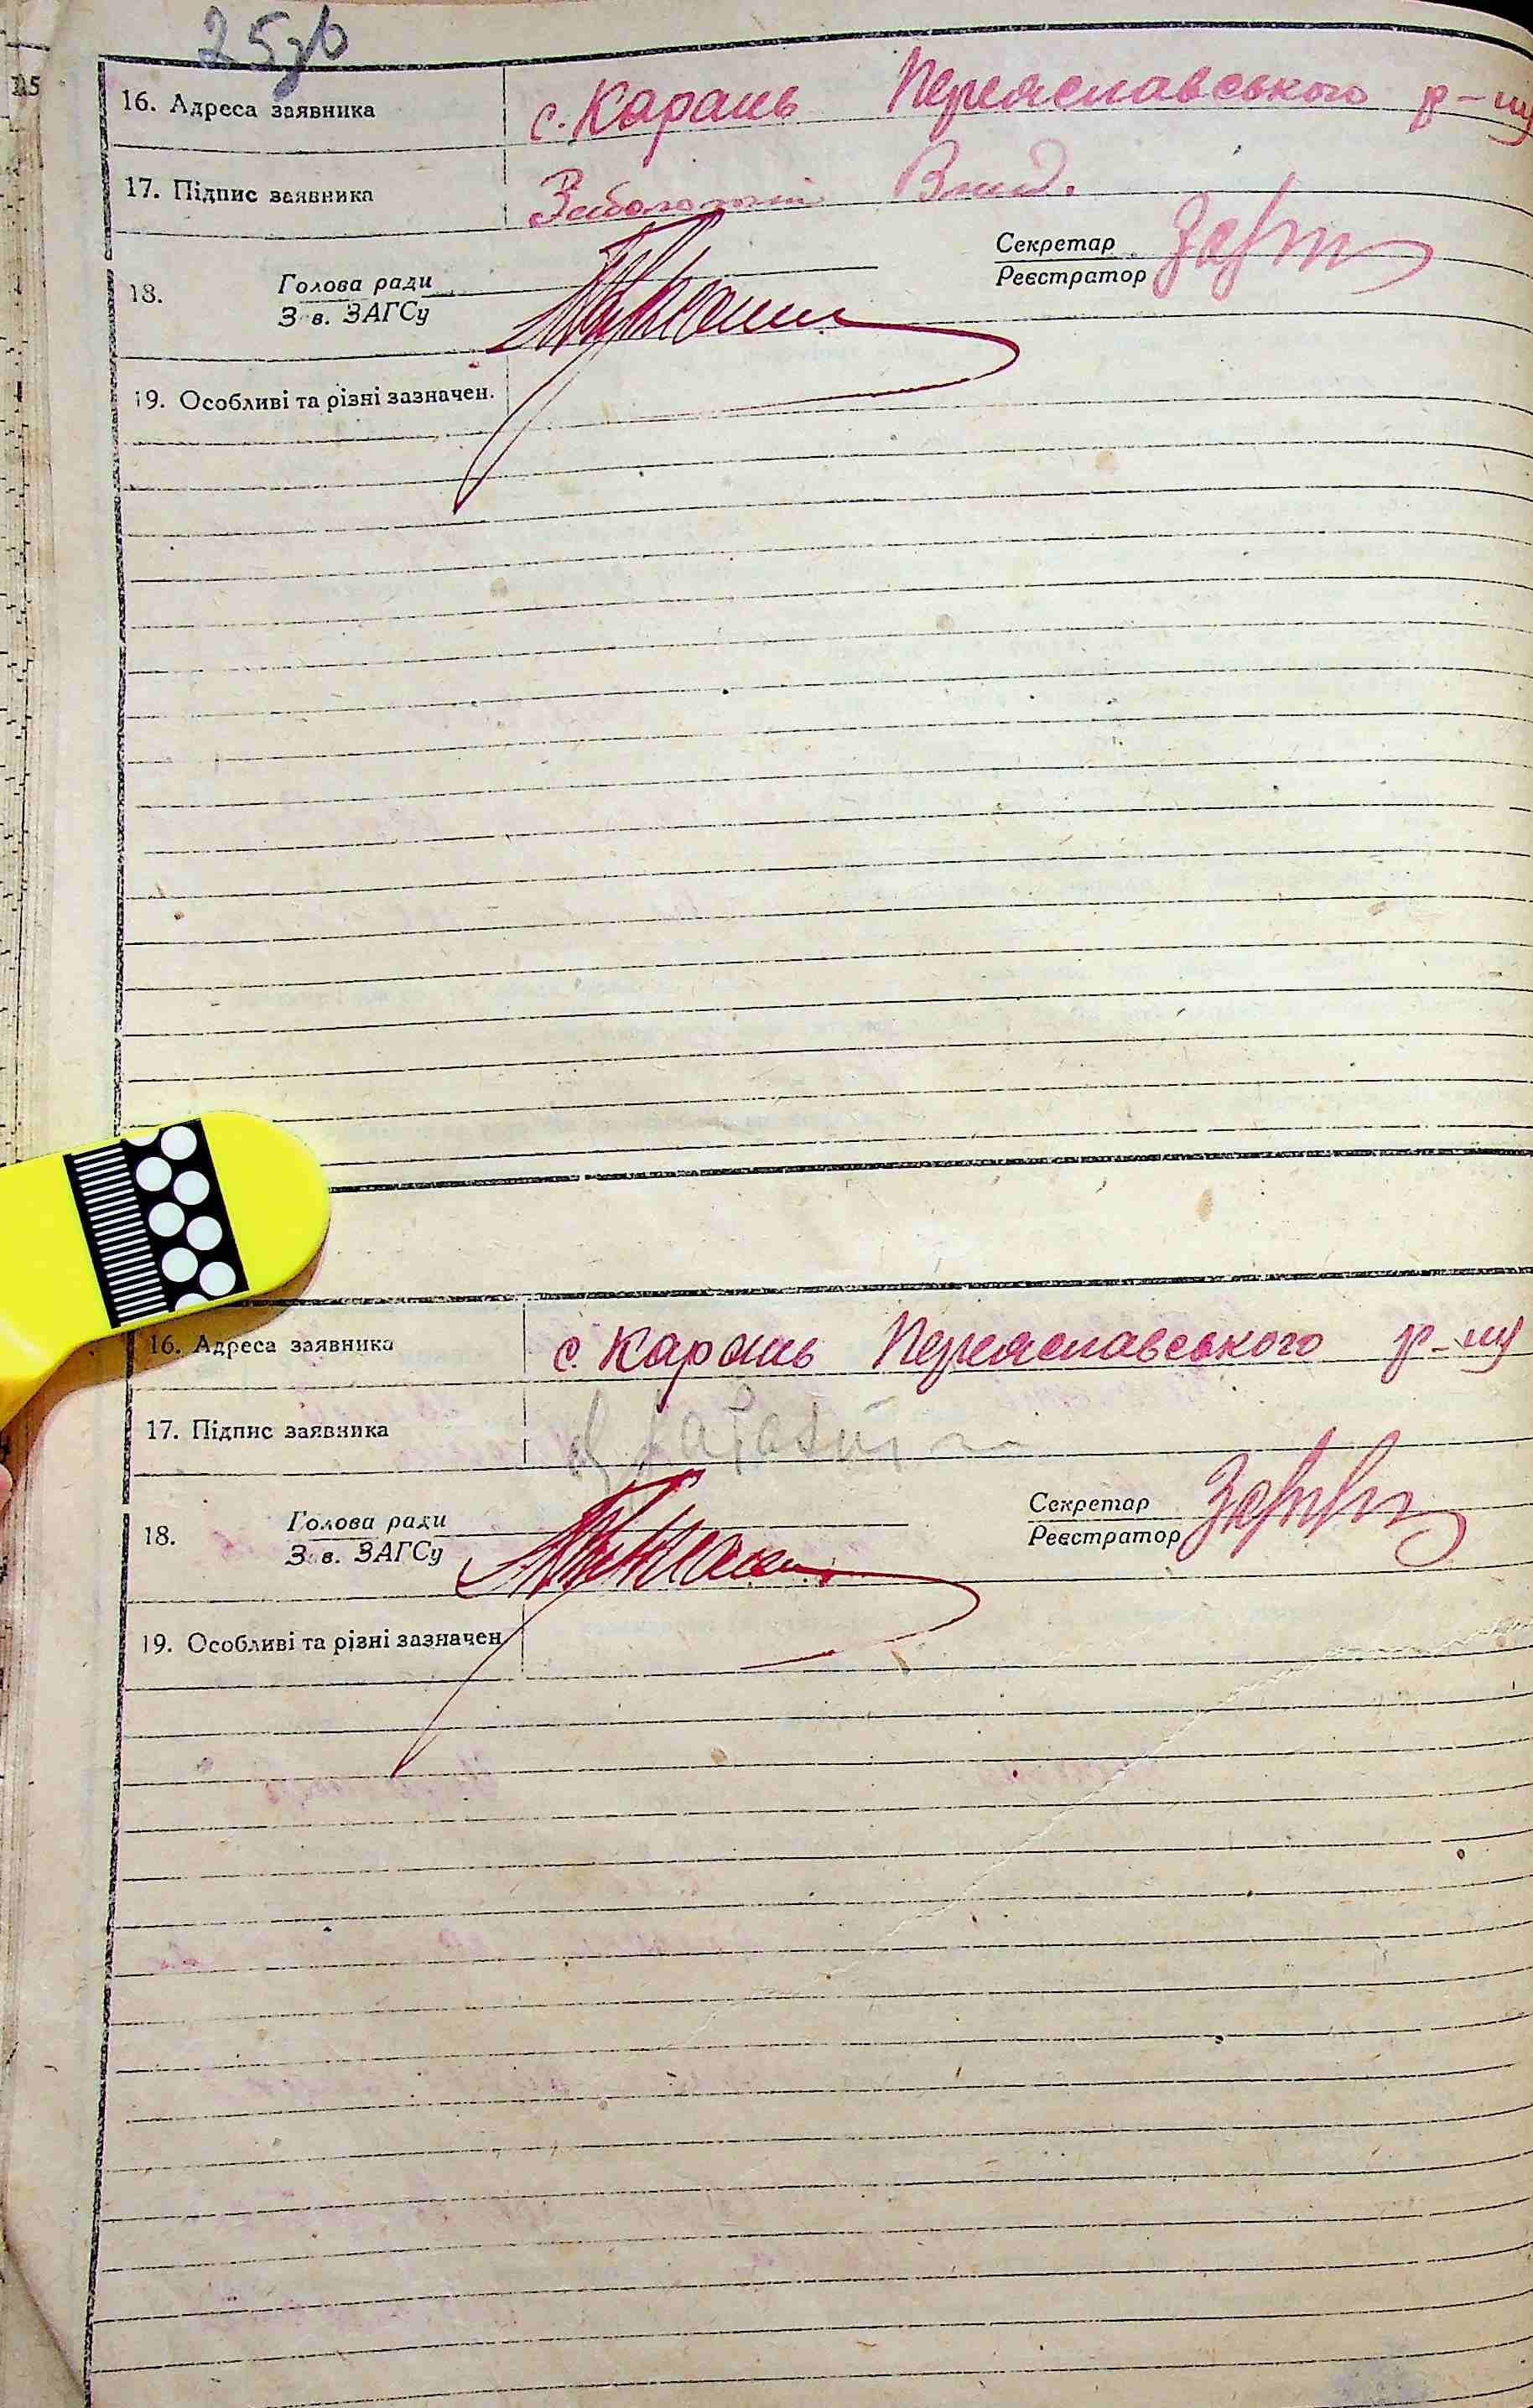 25зв
115
16. Адреса заявника с. Карань Переяславського р-ну
17. Підпис заявника
Секретар
18. Голова ради Реєстратор
Зав. ЗАГСу
19. Особливі та різні зазначен.
16. Адреса заявника с. Карань Переяславського р-ну
17. Підпис заявника
Секретар
18. Голова ради Реєстратор
Зав. ЗАГСу
19. Особливі та різні зазначен.